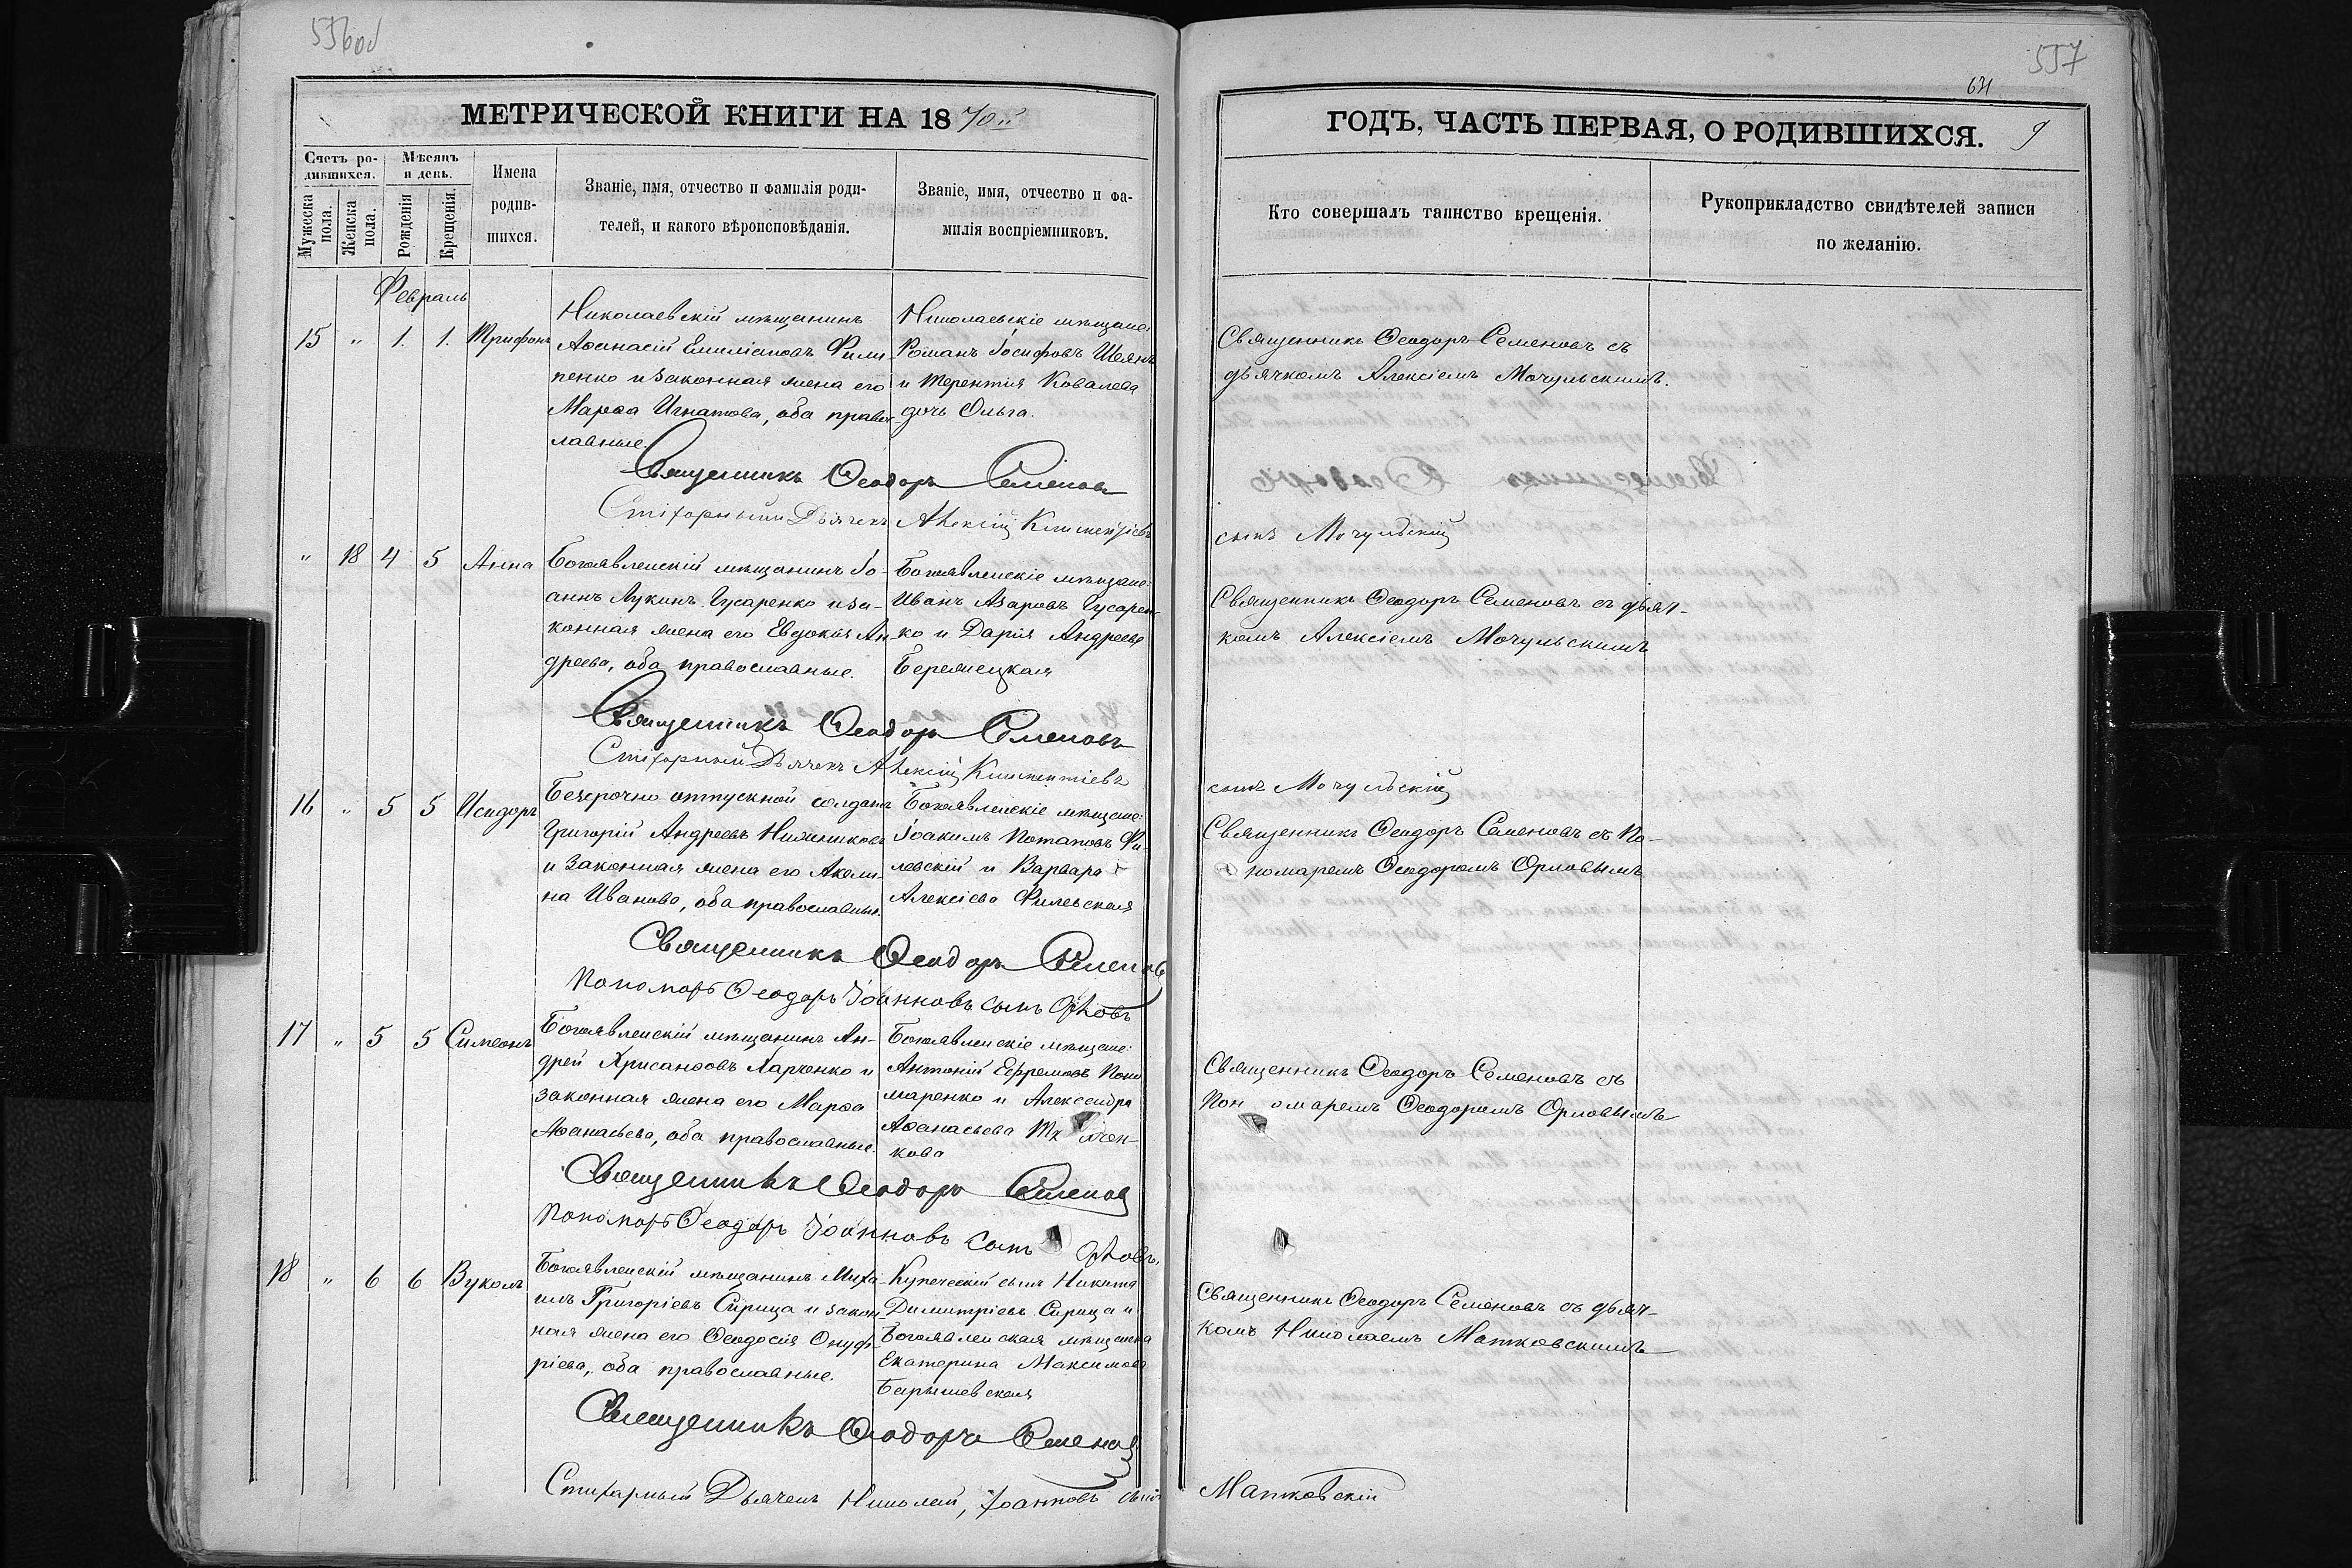 556об
557
64
МЕТРИЧЕСКОЙ КНИГИ НА 1870й
ГОДЪ, ЧАСТЬ ПЕРВАЯ, О РОДИВШИХСЯ. 9
Счетъ ро-
дившихся.
Мужеска
пола.
Женска
пола.
Мѣсяцъ
и день.
Рожденія
Крещенія.
Имена
родив-
шихся.
Званіе, имя, отчество и фамилія роди-
телей, и какого вѣроисповѣданія.
Званіе, имя, отчество и фа-
милія воспріемниковъ.
Кто совершалъ таинство крещенія.
Рукоприкладство свидѣтелей записи
по желанію.
Февраль
15 " 1. 1. Трифонъ
Николаевскій мѣщанинъ
Аѳанасій Емиліановъ Фили-
пенко и законная жена его
Марѳа Игнатова, оба правос-
лавные.
Николаевскіе мѣщане:
Романъ Іосифовъ
и Терентія Ковалева
дочь Ольга.
Священникъ Ѳеодоръ Семеновъ съ
дьячкомъ Алексіемъ Мочульскимъ.
Священникъ Ѳеодоръ Семеновъ
Стіхарный Дьячекъ Алексій Климентіевъ
сынъ Мочульскій
" 18 4 5 Анна
Богоявленскій мѣщанинъ Іо-
аннъ Лукинъ Гусаренко и за-
конная жена его Евдокія Ан-
дреева, оба православные.
Богоявленскіе мѣщане:
Иванъ Азаровъ Гусарен-
ко и Дарія Андреева
Бережецкая
Священникъ Ѳеодоръ Семеновъ съ дьяч-
комъ Алексіемъ Мочульскимъ
Священникъ Ѳеодоръ Семеновъ
Стіхарный Дьячекъ Алексій Климентіевъ
сынъ Мочульскій
16 " 5 5 Исидоръ
Безсрочно-отпускной солдатъ
Григорій Андреевъ Нижниковъ
и законная жена его Акели-
на Иванова, оба православные.
Богоявленскіе мѣщане:
Іоакимъ Потаповъ Фи-
левскій и Варвара
Алексіева Филевская
Священникъ Ѳеодоръ Семеновъ съ По-
номаремъ Ѳеодоромъ Орловымъ
Священникъ Ѳеодоръ Семеновъ
Пономарь Ѳеодоръ Іоанновъ сынъ Орловъ
17 " 5 5 Симеонъ
Богоявленскій мѣщанинъ Ан-
дрей Хрисанѳовъ Харченко и
законная жена его Марѳа
Аѳанасьева, оба православные.
Богоявленскіе мѣщане:
Антоній Ефремовъ Поно
маренко и Александра
Аѳанасьева
кова
Священникъ Ѳеодоръ Семеновъ съ
Пономаремъ Ѳеодоромъ Орловымъ
Священникъ Ѳеодоръ Семеновъ
Пономарь Ѳеодоръ Іоанновъ сынъ Орловъ.
18 " 6 6 Вуколъ
Богоявленскій мѣщанинъ Миха-
илъ Григоріевъ Сирица и закон-
ная жена его Ѳеодосія Онуф-
ріева, оба православные.
Купеческій сынъ Никита
Димитріевъ Сирица и
Богоявленская мѣщанка
Екатерина Максимова
Барышевская
Священникъ Ѳеодоръ Семеновъ съ дьяч-
комъ Николаемъ Матковскимъ
Священникъ Ѳеодоръ Семеновъ
Стихарный Дьячекъ Николай, Іоанновъ сынъ
Матковскій